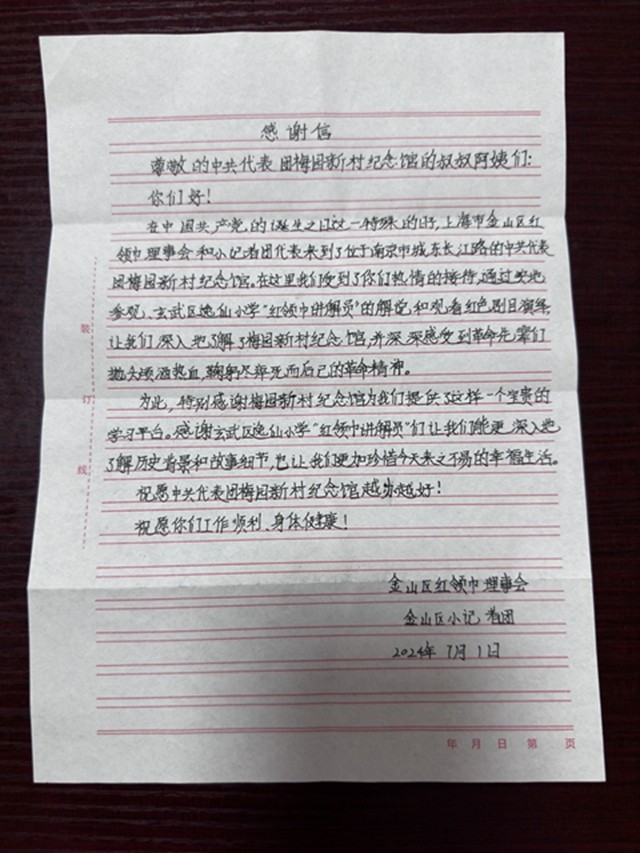 感谢信
尊敬的中共代表团梅园新村纪念馆的叔叔阿姨们:
你们好!
在中国共产党的诞生之日这一特殊的日子,上海市金山区红
领巾理事会和小记者团代表来到了位于南京市城东长江路的中共代表
团梅园新村纪念馆,在这里我们受到了你们热情的接待,通过实地
参观、玄武区逸仙小学“红领巾讲解员”的解说和观看红色剧目演绎,
让我们深入地了解了梅园新村纪念馆,并深深感受到革命先辈们
抛头颅洒热血,鞠躬尽瘁死而后已的革命精神。
为此,特别感谢梅园新村纪念馆为我们提供了这样一个宝贵的
学习平台。感谢玄武区逸仙小学“红领巾讲解员”们让我们能更深入地
了解历史背景和故事细节,也让我们更加珍惜今天来之不易的幸福生活。
祝愿中共代表团梅园新村纪念馆越办越好!
祝愿你们工作顺利、身体健康!
金山区红领巾理事会
金山区小记者团
2024年7月1日
装
订
线
年 月 日 第 页